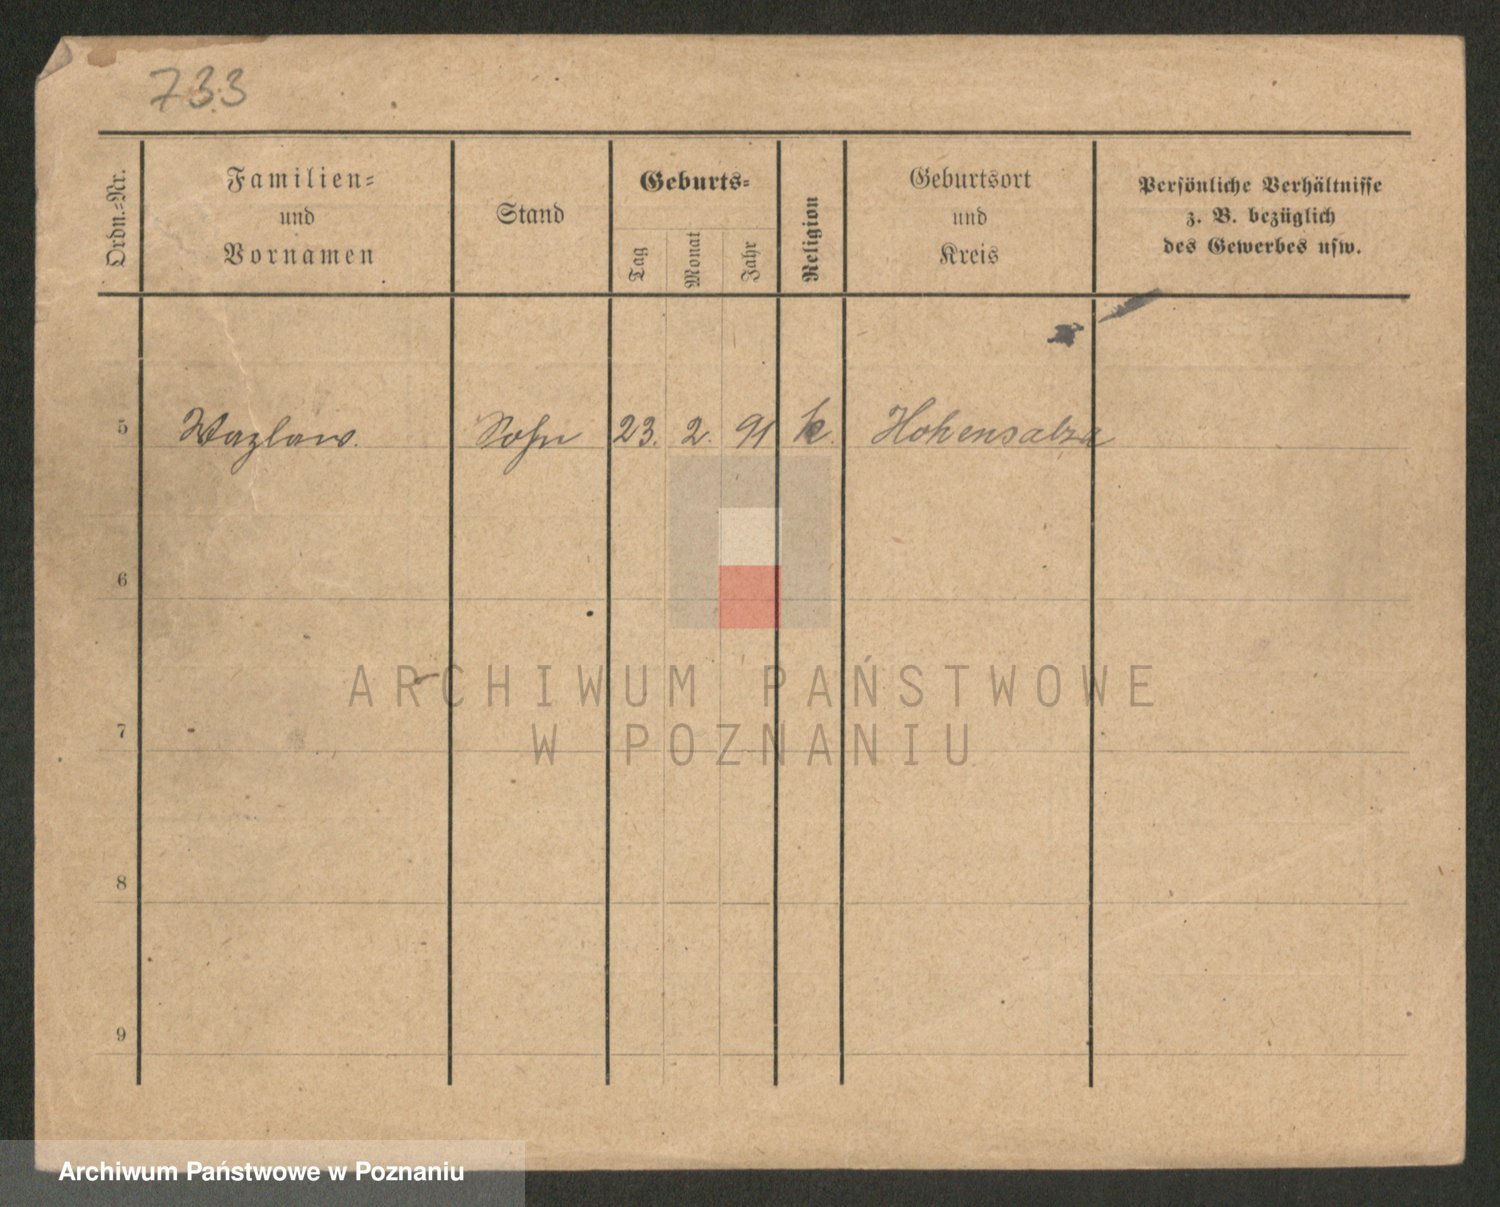 733
Ordn.-Nr.
Familien-
und
Vornamen
Stand
Geburts-
Tag
Monat
Jahr
Religion
Geburtsort
und
Kreis
Persönliche Verhältnisse
z. B. bezüglich
des Gewerbes usw.
5 Wazlaw. Sohn 23. 2. 91 k. Hohensalza
6
7
8
9
ARCHIWUM PAŃSTWOWE
W POZNANIU
Archiwum Państwowe w Poznaniu